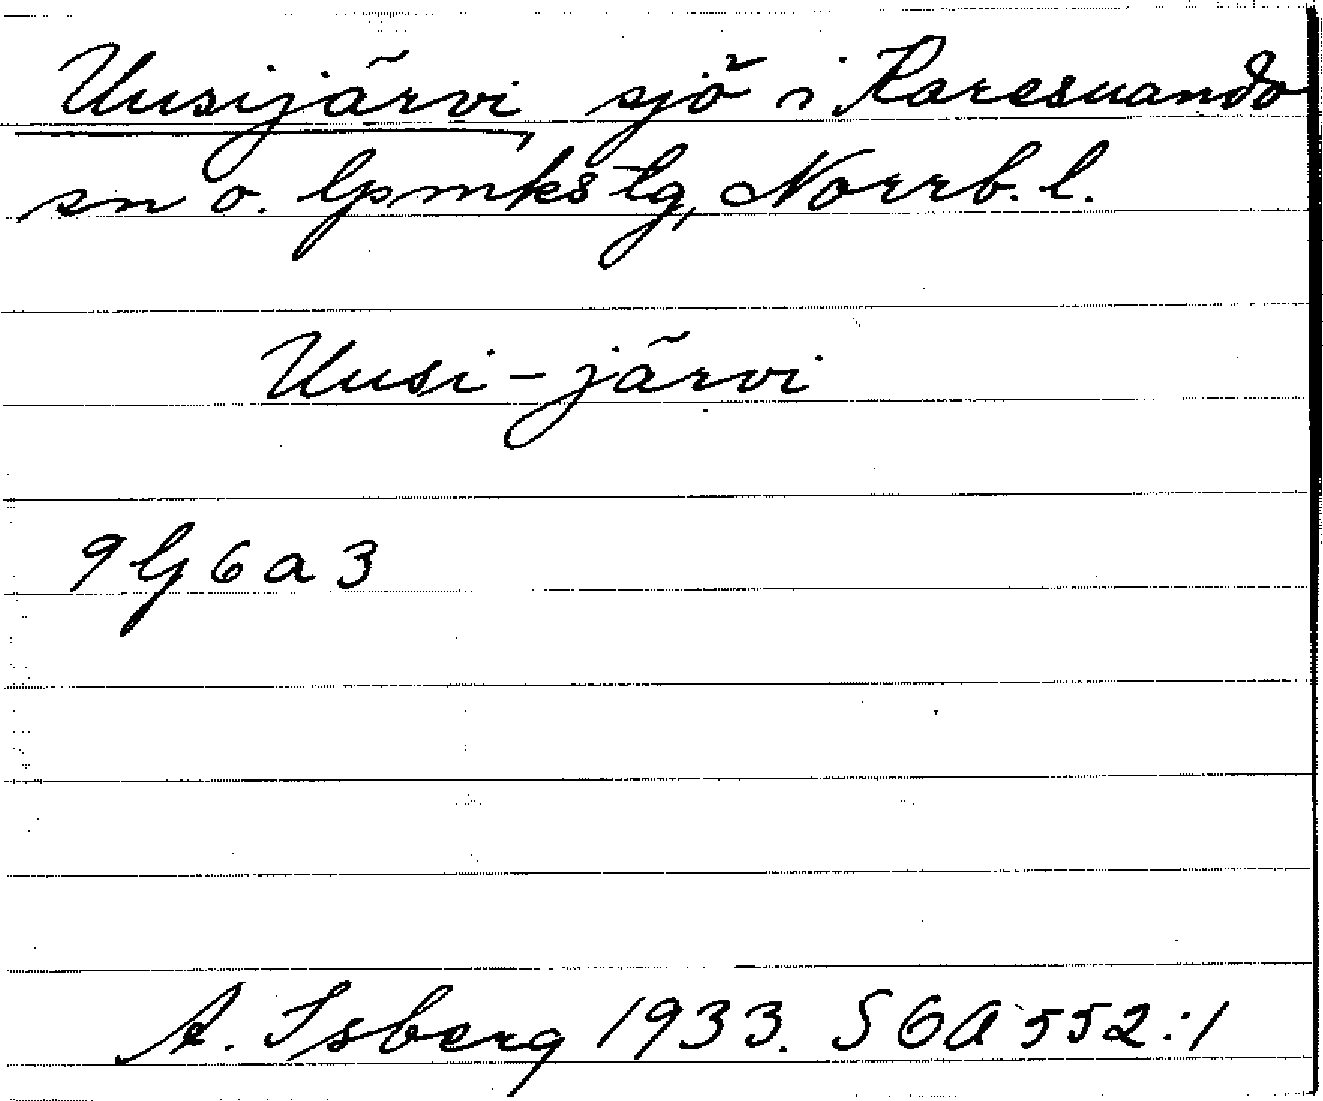 Uusijärvi sjö i Karesuando
sn o. lpmks-tg, Norrb. l.
Uusi-järvi
9 G 6 a 3
A. Isberg 1933. SOA 552:1